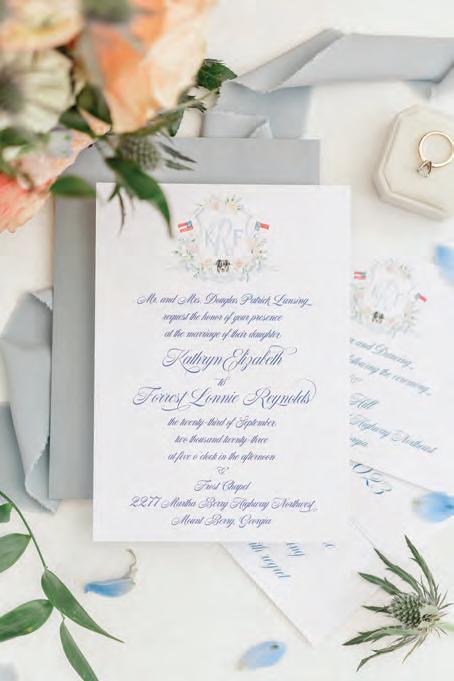 K R F
Mr. and Mrs. Douglas Patrick Lansing
request the honor of your presence
at the marriage of their daughter
Kathryn Elizabeth
to
Forrest Lonnie Reynolds
the twenty-third of September
two thousand twenty-three
at five o clock in the afternoon
&
Frost Chapel
2277 Martha Berry Highway Northwest
Mount Berry, Georgia
K R F
and Dancing
following the ceremony
Hall
Highway Northwest